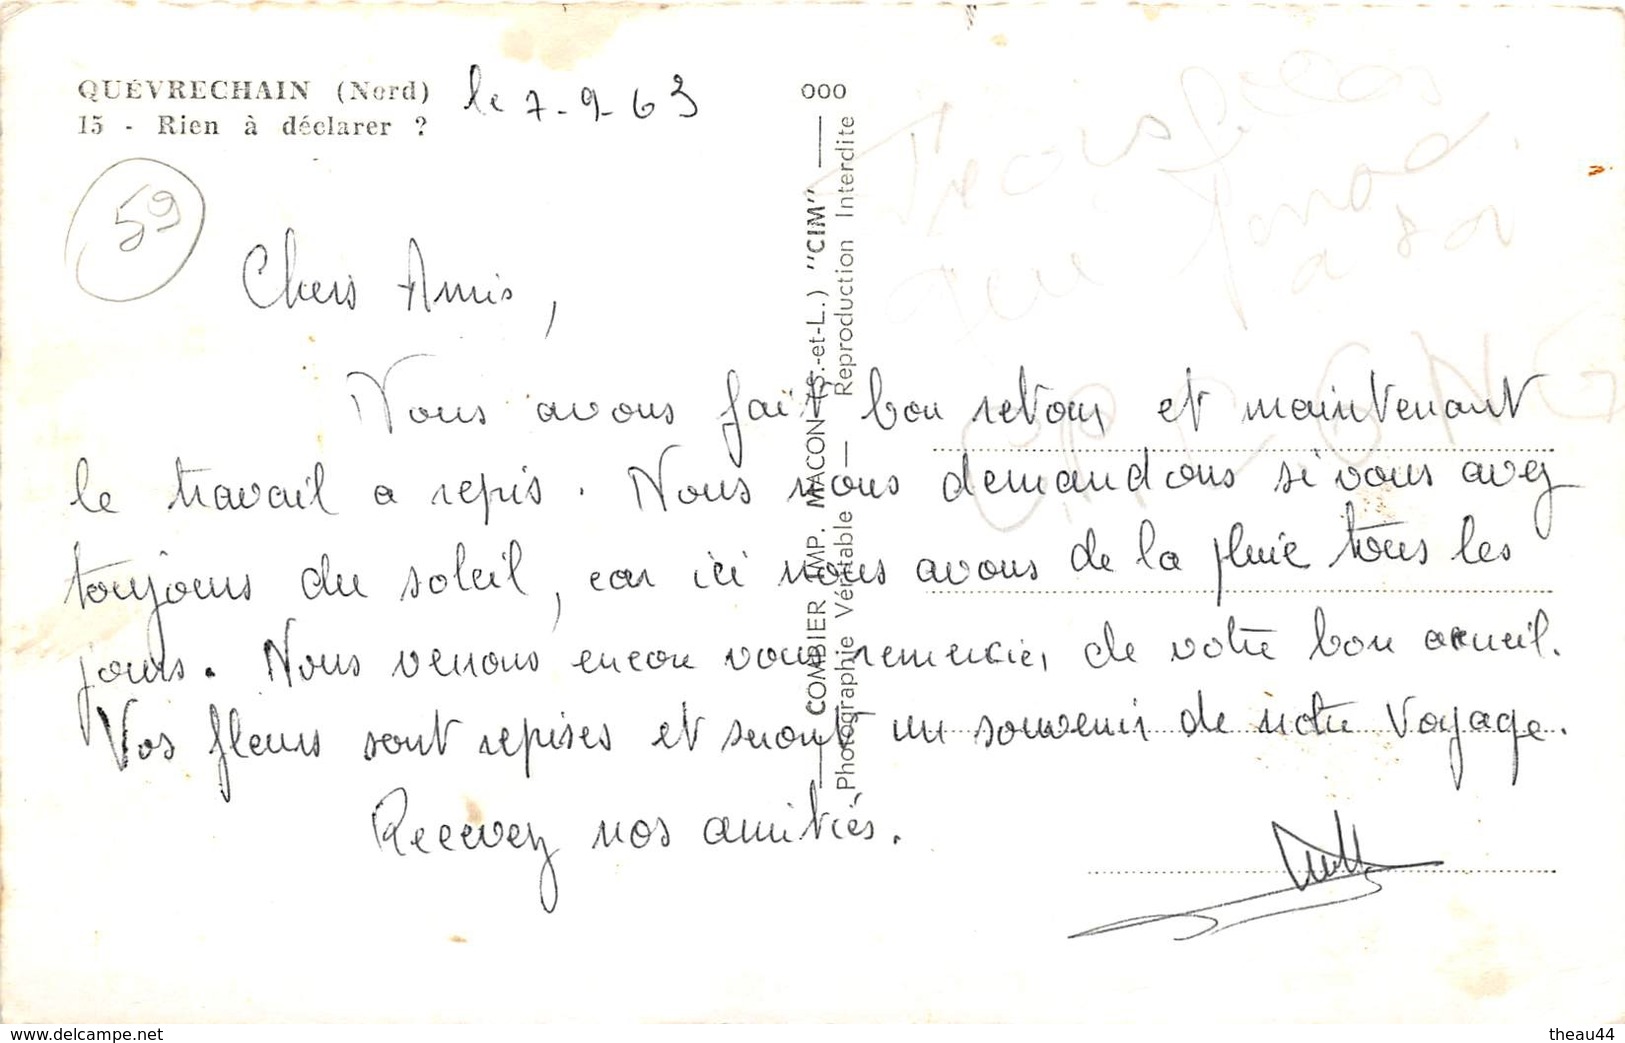 QUÉVRECHAIN (Nord)
15 - Rien à déclarer ?
le 7-9-63
59
Chers Amis,
Nous avons fait bon retour et maintenant
le travail a repis. Nous nous demandons si vous avez
toujours du soleil, car ici nous avons de la pluie tous les
jours. Nous venons encore vous remercier de votre bon accueil.
Vos fleurs sont reprises et seront un souvenir de notre Voyage.
Recevez nos amitiés.
OOO
COMBIER IMP. MACON (S.-et-L.) "CIM"
Photographie Véritable — Reproduction Interdite
www.delcampe.net
theau44